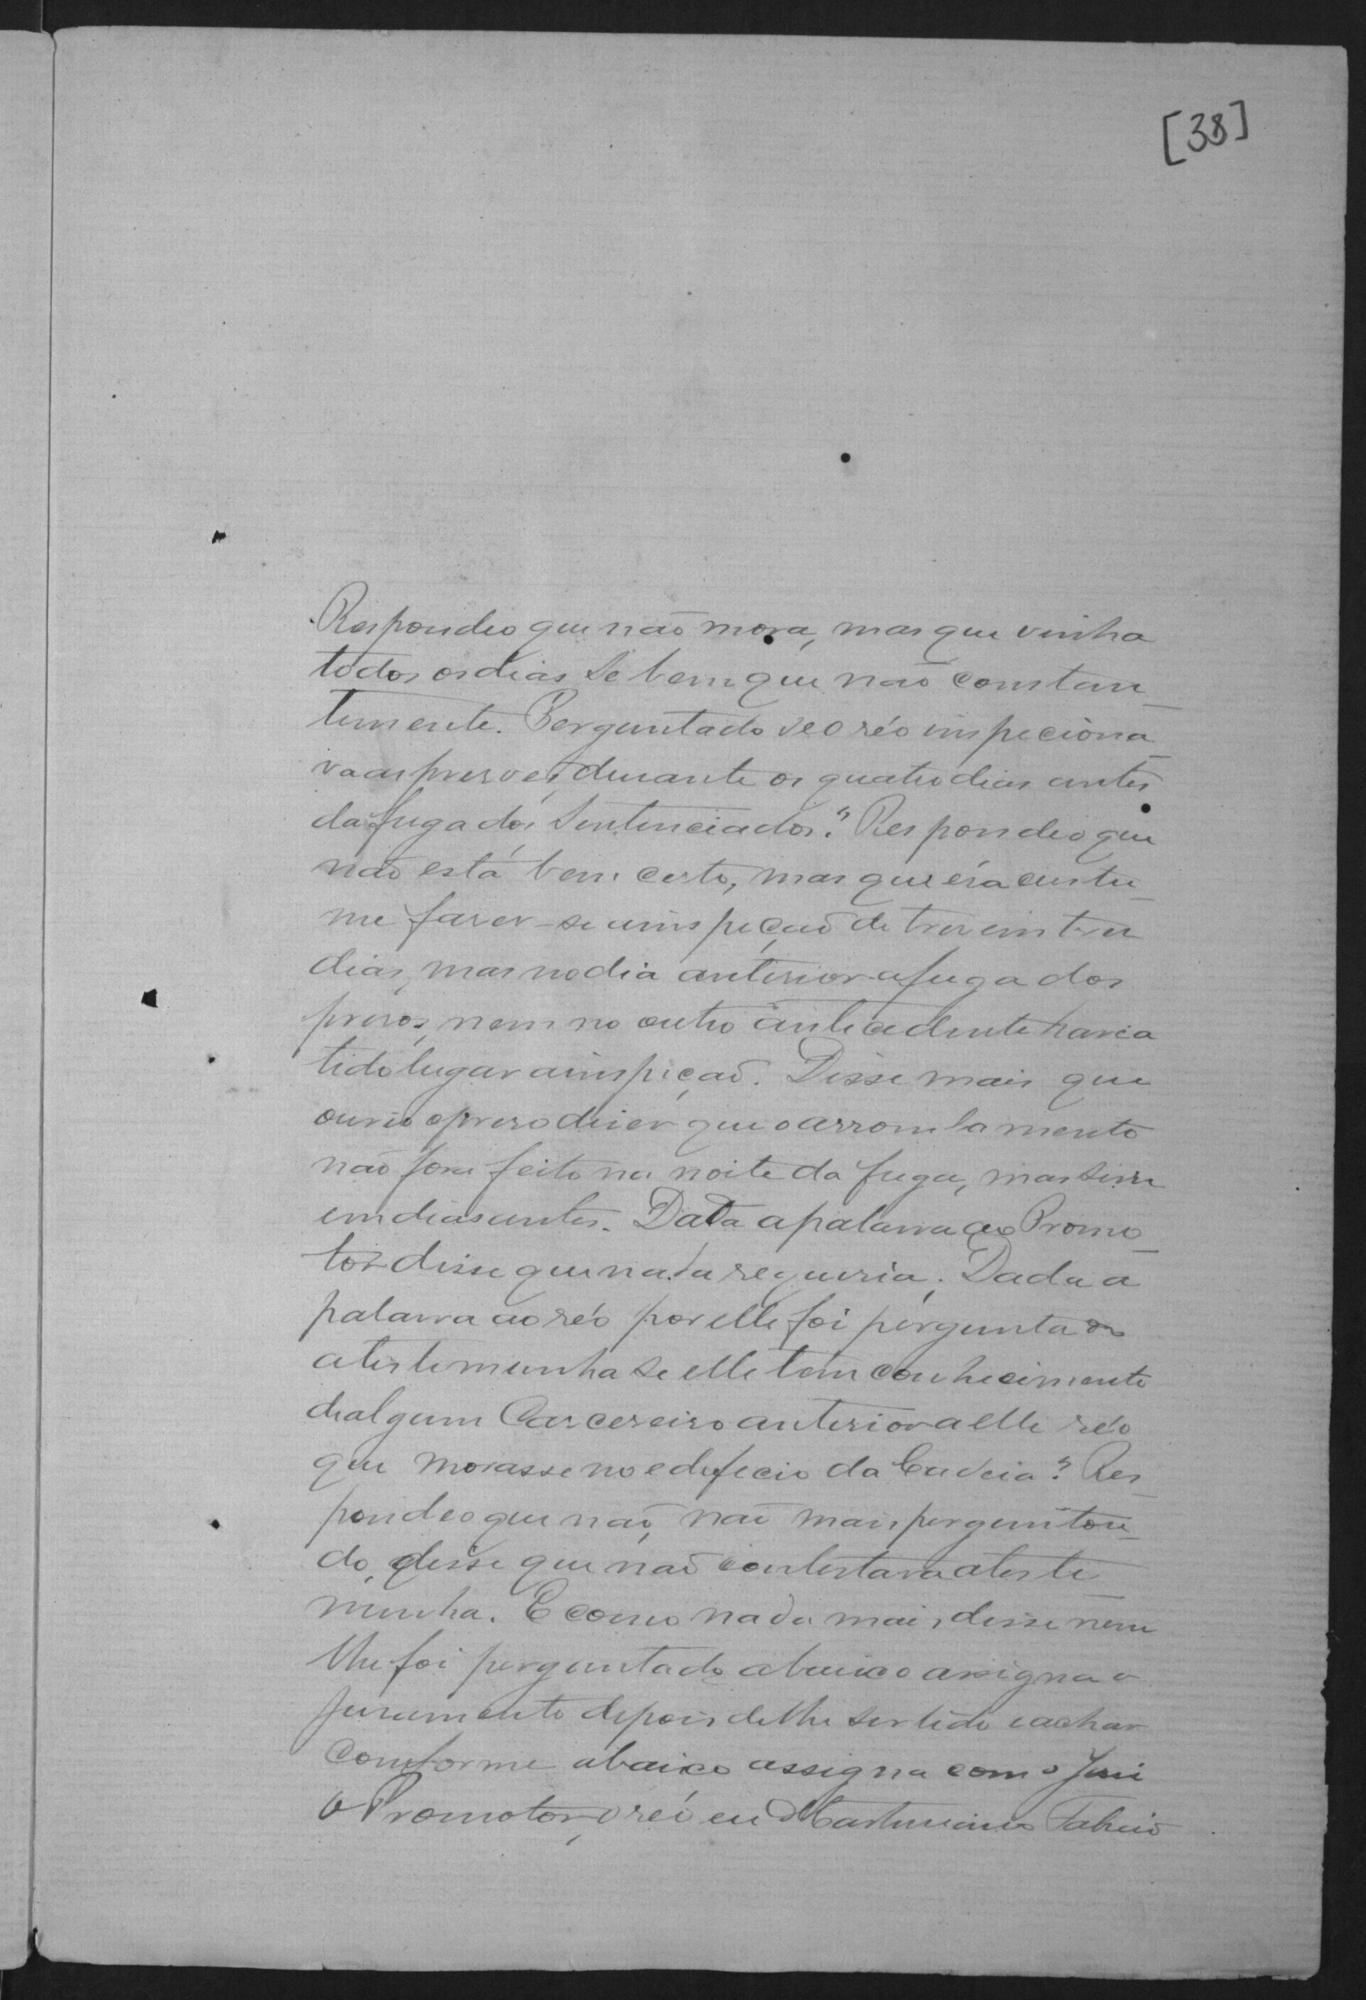 [38]
Respondeo que não mora, mas que vinha
todos os dias se bem que não constan_
temente. Perguntado se o réo inspeciona_
va as prisões, durante os quatro dias antes
da fuga dos sentenciados? Respondeo que
não está bem certo, mas que éra custu_
me faser-se a inspeção de tres em tres
dias, mas no dia anterior a fuga dos
presos, nem no outro antecedente havia
tido lugar a inspeção. Disse mais que
ouvio o preso diser que o arrombamento
não fora feito na noite da fuga, mas sim
em dias antes. Data a palavra ao Promo_
tor disse que nada requeria. Dada a
palavra ao réo por elle foi perguntado
a testemunha se elle tem conhecimento
de algum Carcereiro anterior a elle réo
que morasse no edeficio da Cadeia? Res_
pondeo que não, não mais perguntou_
do, disse que não contestava a teste_
munha. E como nada mais disse nem
lhe foi perguntado abaixo assigna o
juramento depois de lhe ser lido e achar
conforme abaixo assigna com o Juis
o Promotor, o réo eu Martiniano Fabricio